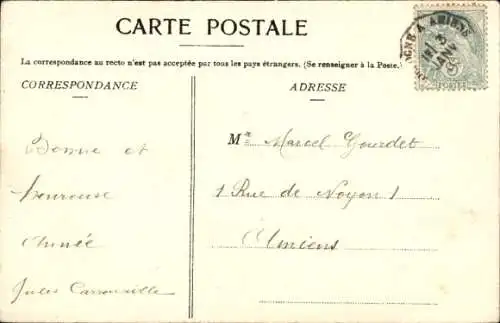 CARTE POSTALE
La correspondance au recto n'est pas acceptée par tous les pays étrangers. (Se renseigner à la Poste.)
CORRESPONDANCE
ADRESSE
Bonne et
heureuse
Année
Jules
Mr Marcel Gourdet
1 Rue de Noyon 1
Amiens
A AMIENS